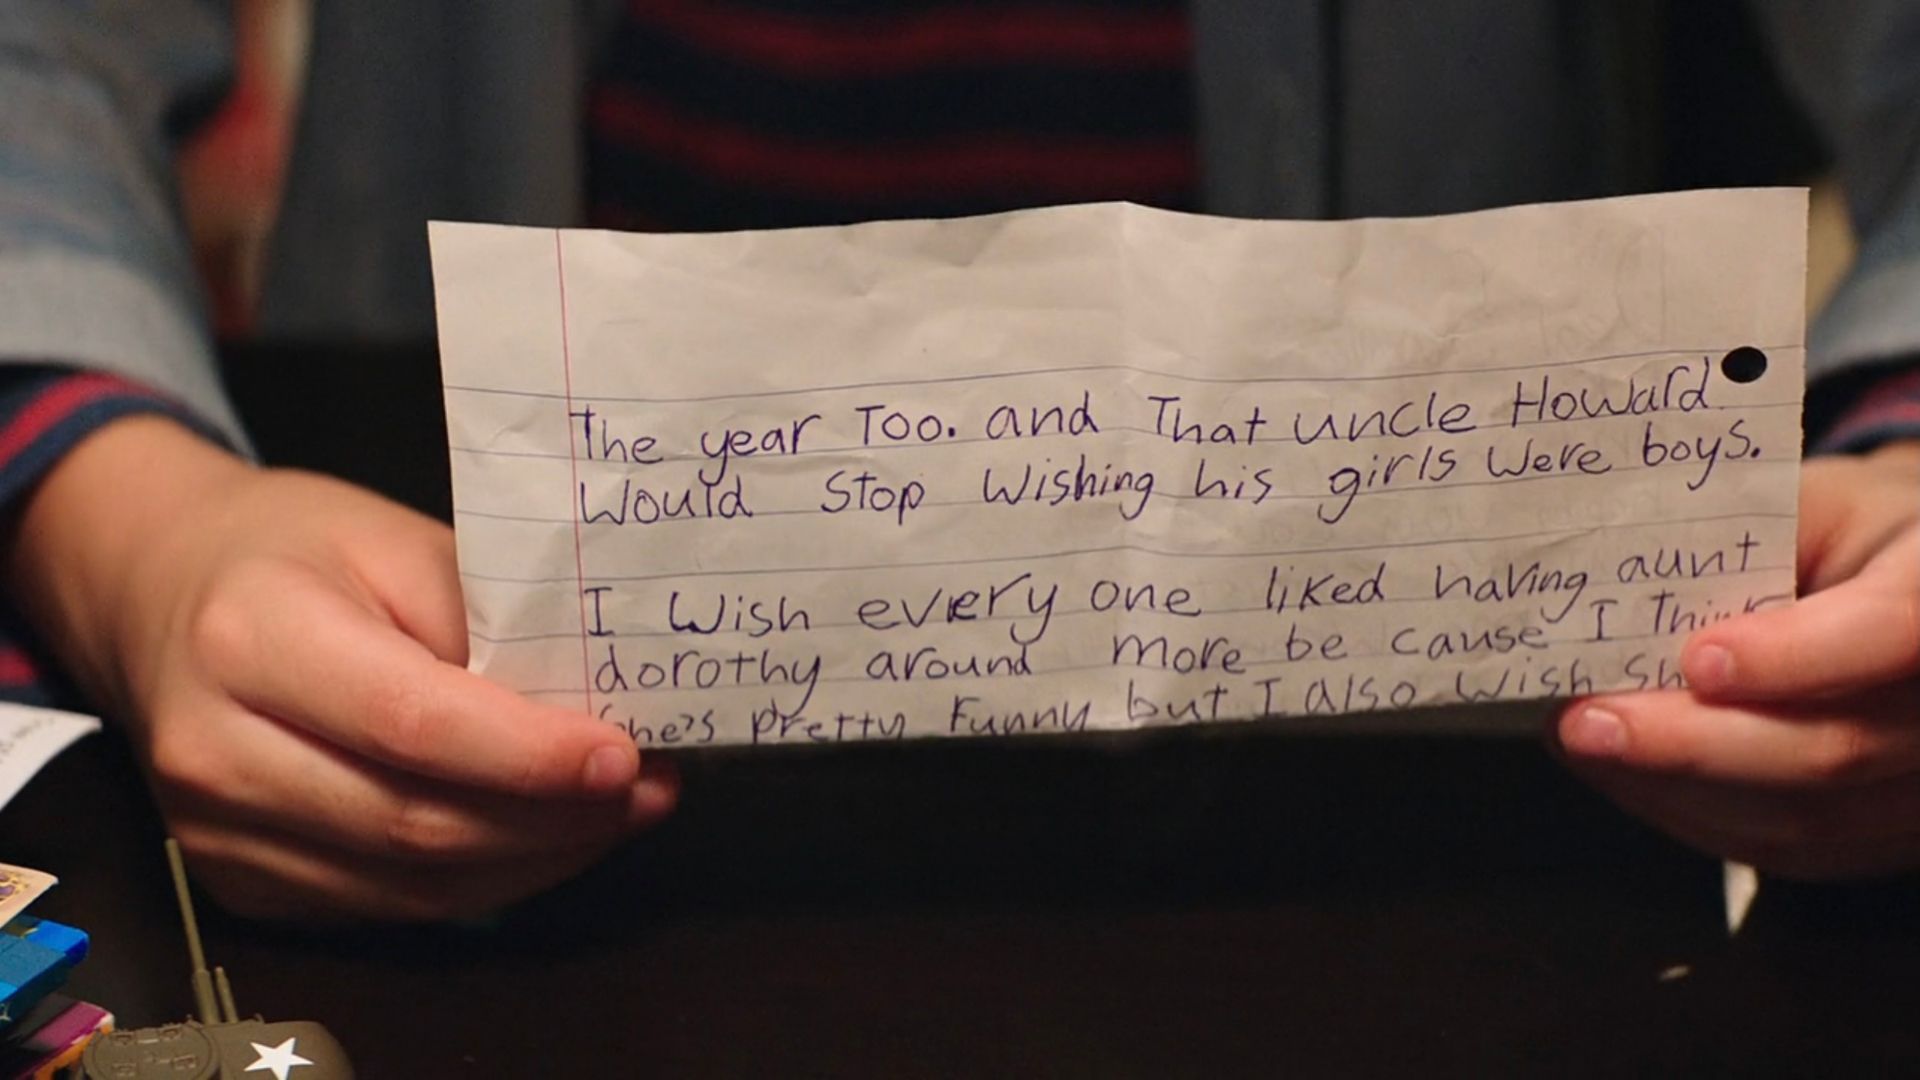 The year Too. and That uncle Howard
Would Stop Wishing his girls Were boys.
I Wish every one liked having aunt
dorothy around more be cause I Think
She's pretty Funny but I also Wish Sh